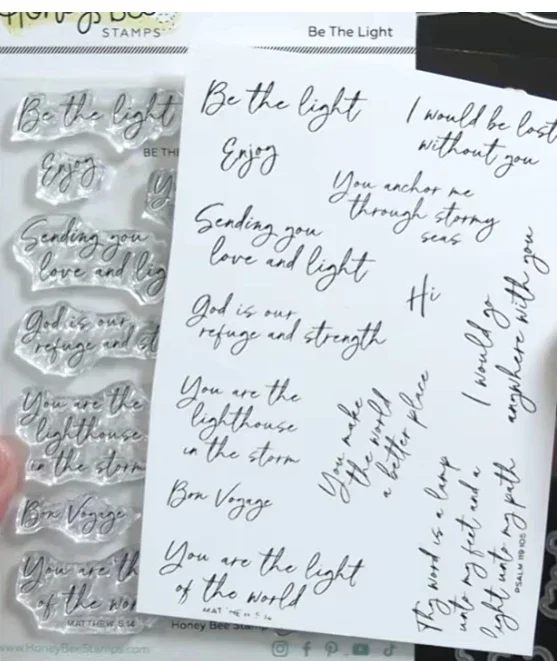 Honey Bee
STAMPS
Be The Light
Be the light
Enjoy
BE THE
Sending you
love and lig
God is our
refuge and st
You are the
lighthouse
in the storm
Bon Voyage
You are th
of the wor
MATTHEW 5:14
www.HoneyBeeStamps.com
Be the light
Enjoy
Sending you
love and light
God is our
refuge and strength
You are the
lighthouse
in the storm
Bon Voyage
You are the light
of the world
MATTHEW 5:14
I would be lost
without you
You anchor me
through stormy
seas
Hi
I would go
anywhere with you
You make
the world
a better place
Thy word is a lamp
unto my feet and a
light unto my path
PSALM 119:105
Honey Bee Stamps